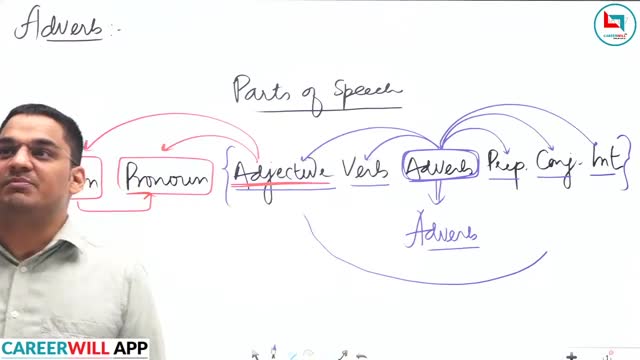 Adverb :-
CAREERWILL
Parts of Speech
n Pronoun { Adjective Verb Adverbs Prep. Conj. Int }
Adverb
CAREERWILL APP